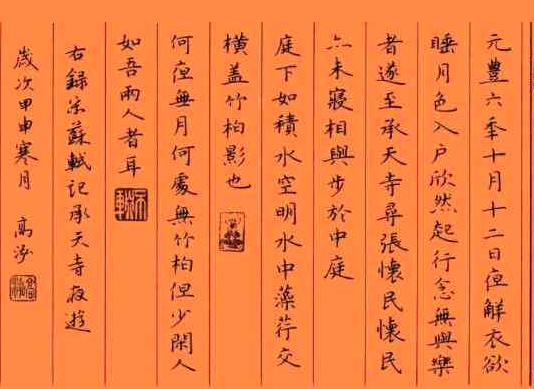 元豐六年十月十二日夜解衣欲
睡月色入户欣然起行念無與樂
者遂至承天寺尋張懷民懷民
亦未寢相與步於中庭
庭下如積水空明水中藻荇交
橫蓋竹柏影也
何夜無月何處無竹柏但少閑人
如吾兩人者耳
右錄宋蘇軾記承天寺夜遊
歲次甲申寒月 高泓